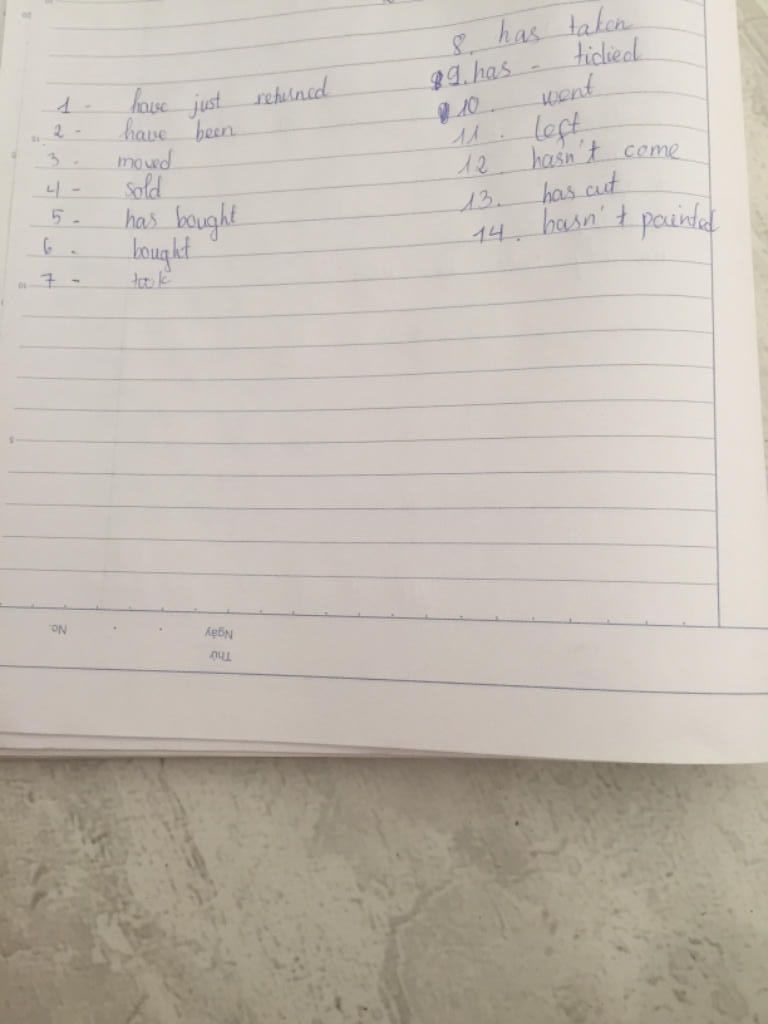 1 - have just returned
2 - have been
3 - moved
4 - sold
5 - has bought
6 - bought
7 - took
8. has taken
9. has - tidied
10. went
11. left
12 hasn't come
13. has cut
14. hasn't painted
No.
Ngày
Thứ